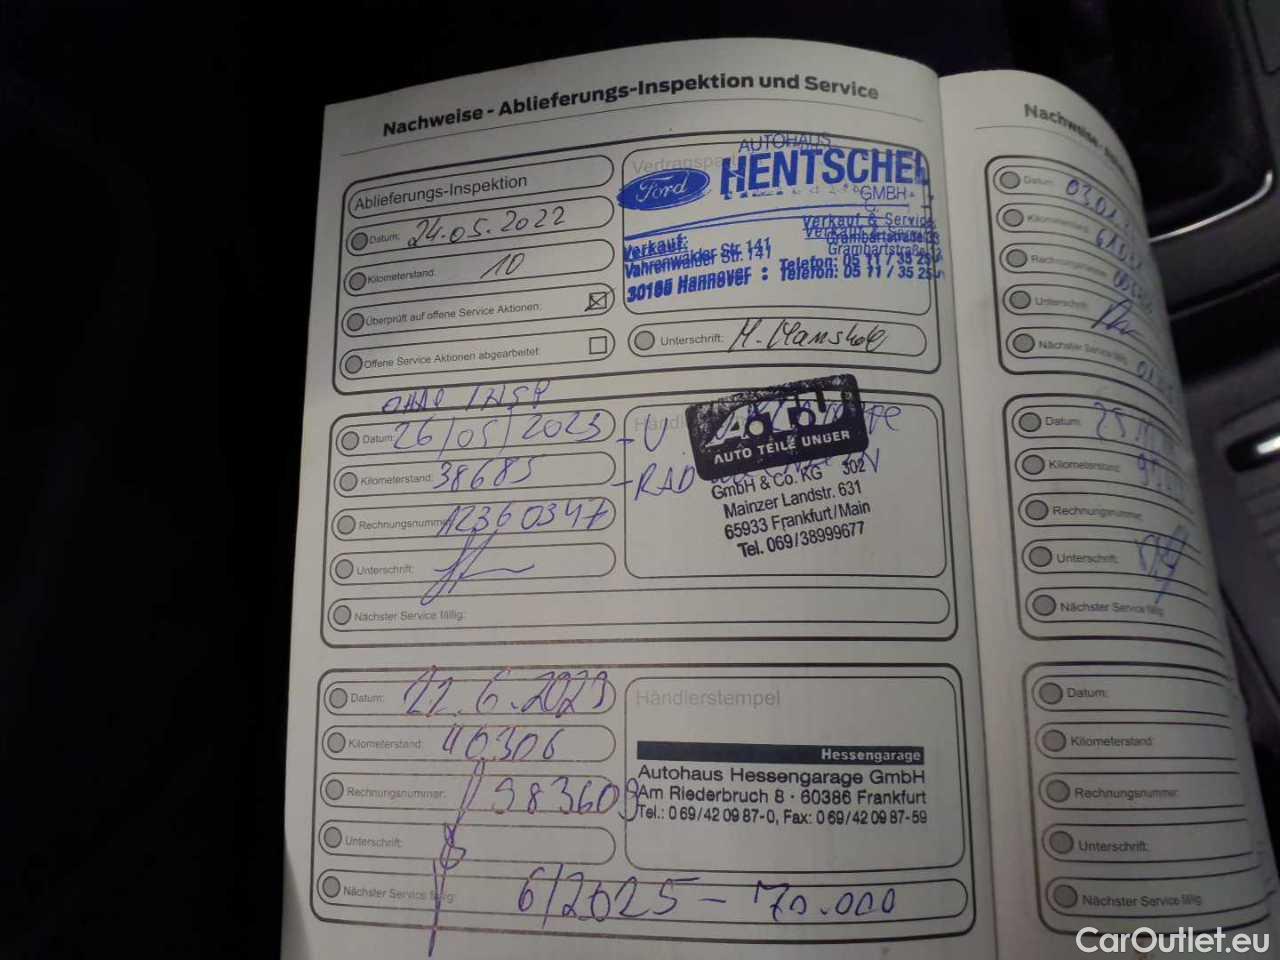 Nachweise - Ablieferungs-Inspektion und Service
Ablieferungs-Inspektion
Datum: 24.05.2022
Kilometerstand: 10
Überprüft auf offene Service Aktionen:
Offene Service Aktionen abgearbeitet:
AUTOHAUS
Ford HENTSCHEL
GMBH
Verkauf & Service
Verkauf:
Vahrenwalder Str. 141
Grambartstraße
30165 Hannover : Telefon: 05 11 / 35 25
Unterschrift:
Datum: 26/05/2023 -U
Kilometerstand: 38685 -RAD
Rechnungsnummer: 12360347
Unterschrift:
Nächster Service fällig:
A.T.U
AUTO TEILE UNGER
GmbH & Co. KG 302
Mainzer Landstr. 631
65933 Frankfurt/Main
Tel. 069/38999677
Datum: 22.6.2023
Kilometerstand: 40.306
Rechnungsnummer:
Unterschrift:
Nächster Service fällig: 6/2025 - 70.000
Händlerstempel
Hessengarage
Autohaus Hessengarage GmbH
Am Riederbruch 8 · 60386 Frankfurt
Tel.: 0 69/42 09 87-0, Fax: 0 69/42 09 87-59
Nachweise - 
Datum:
Kilometerstand:
Rechnungsnummer:
Unterschrift:
Nächster Service fällig:
Datum:
Kilometerstand:
Rechnungsnummer:
Unterschrift:
Nächster Service fällig:
Datum:
Kilometerstand:
Rechnungsnummer:
Unterschrift:
Nächster Service fällig:
CarOutlet.eu